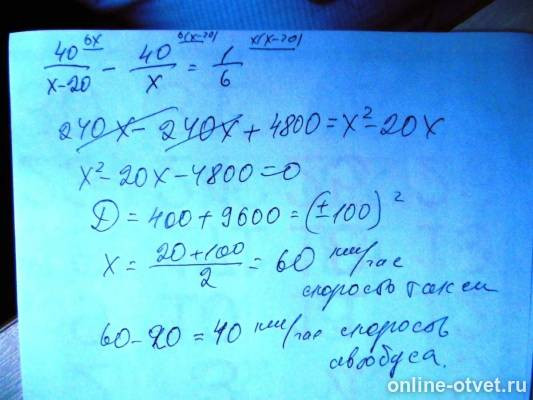 40 6x 40 6(x-20) 1 x(x-20)
x-20 - x = 6
240x - 240x + 4800 = x² - 20x
x² - 20x - 4800 = 0
D = 400 + 9600 = (±100)²
x = 20+100 / 2 = 60 км/час
скорость такси
60 - 20 = 40 км/час скорость
автобуса.
online-otvet.ru